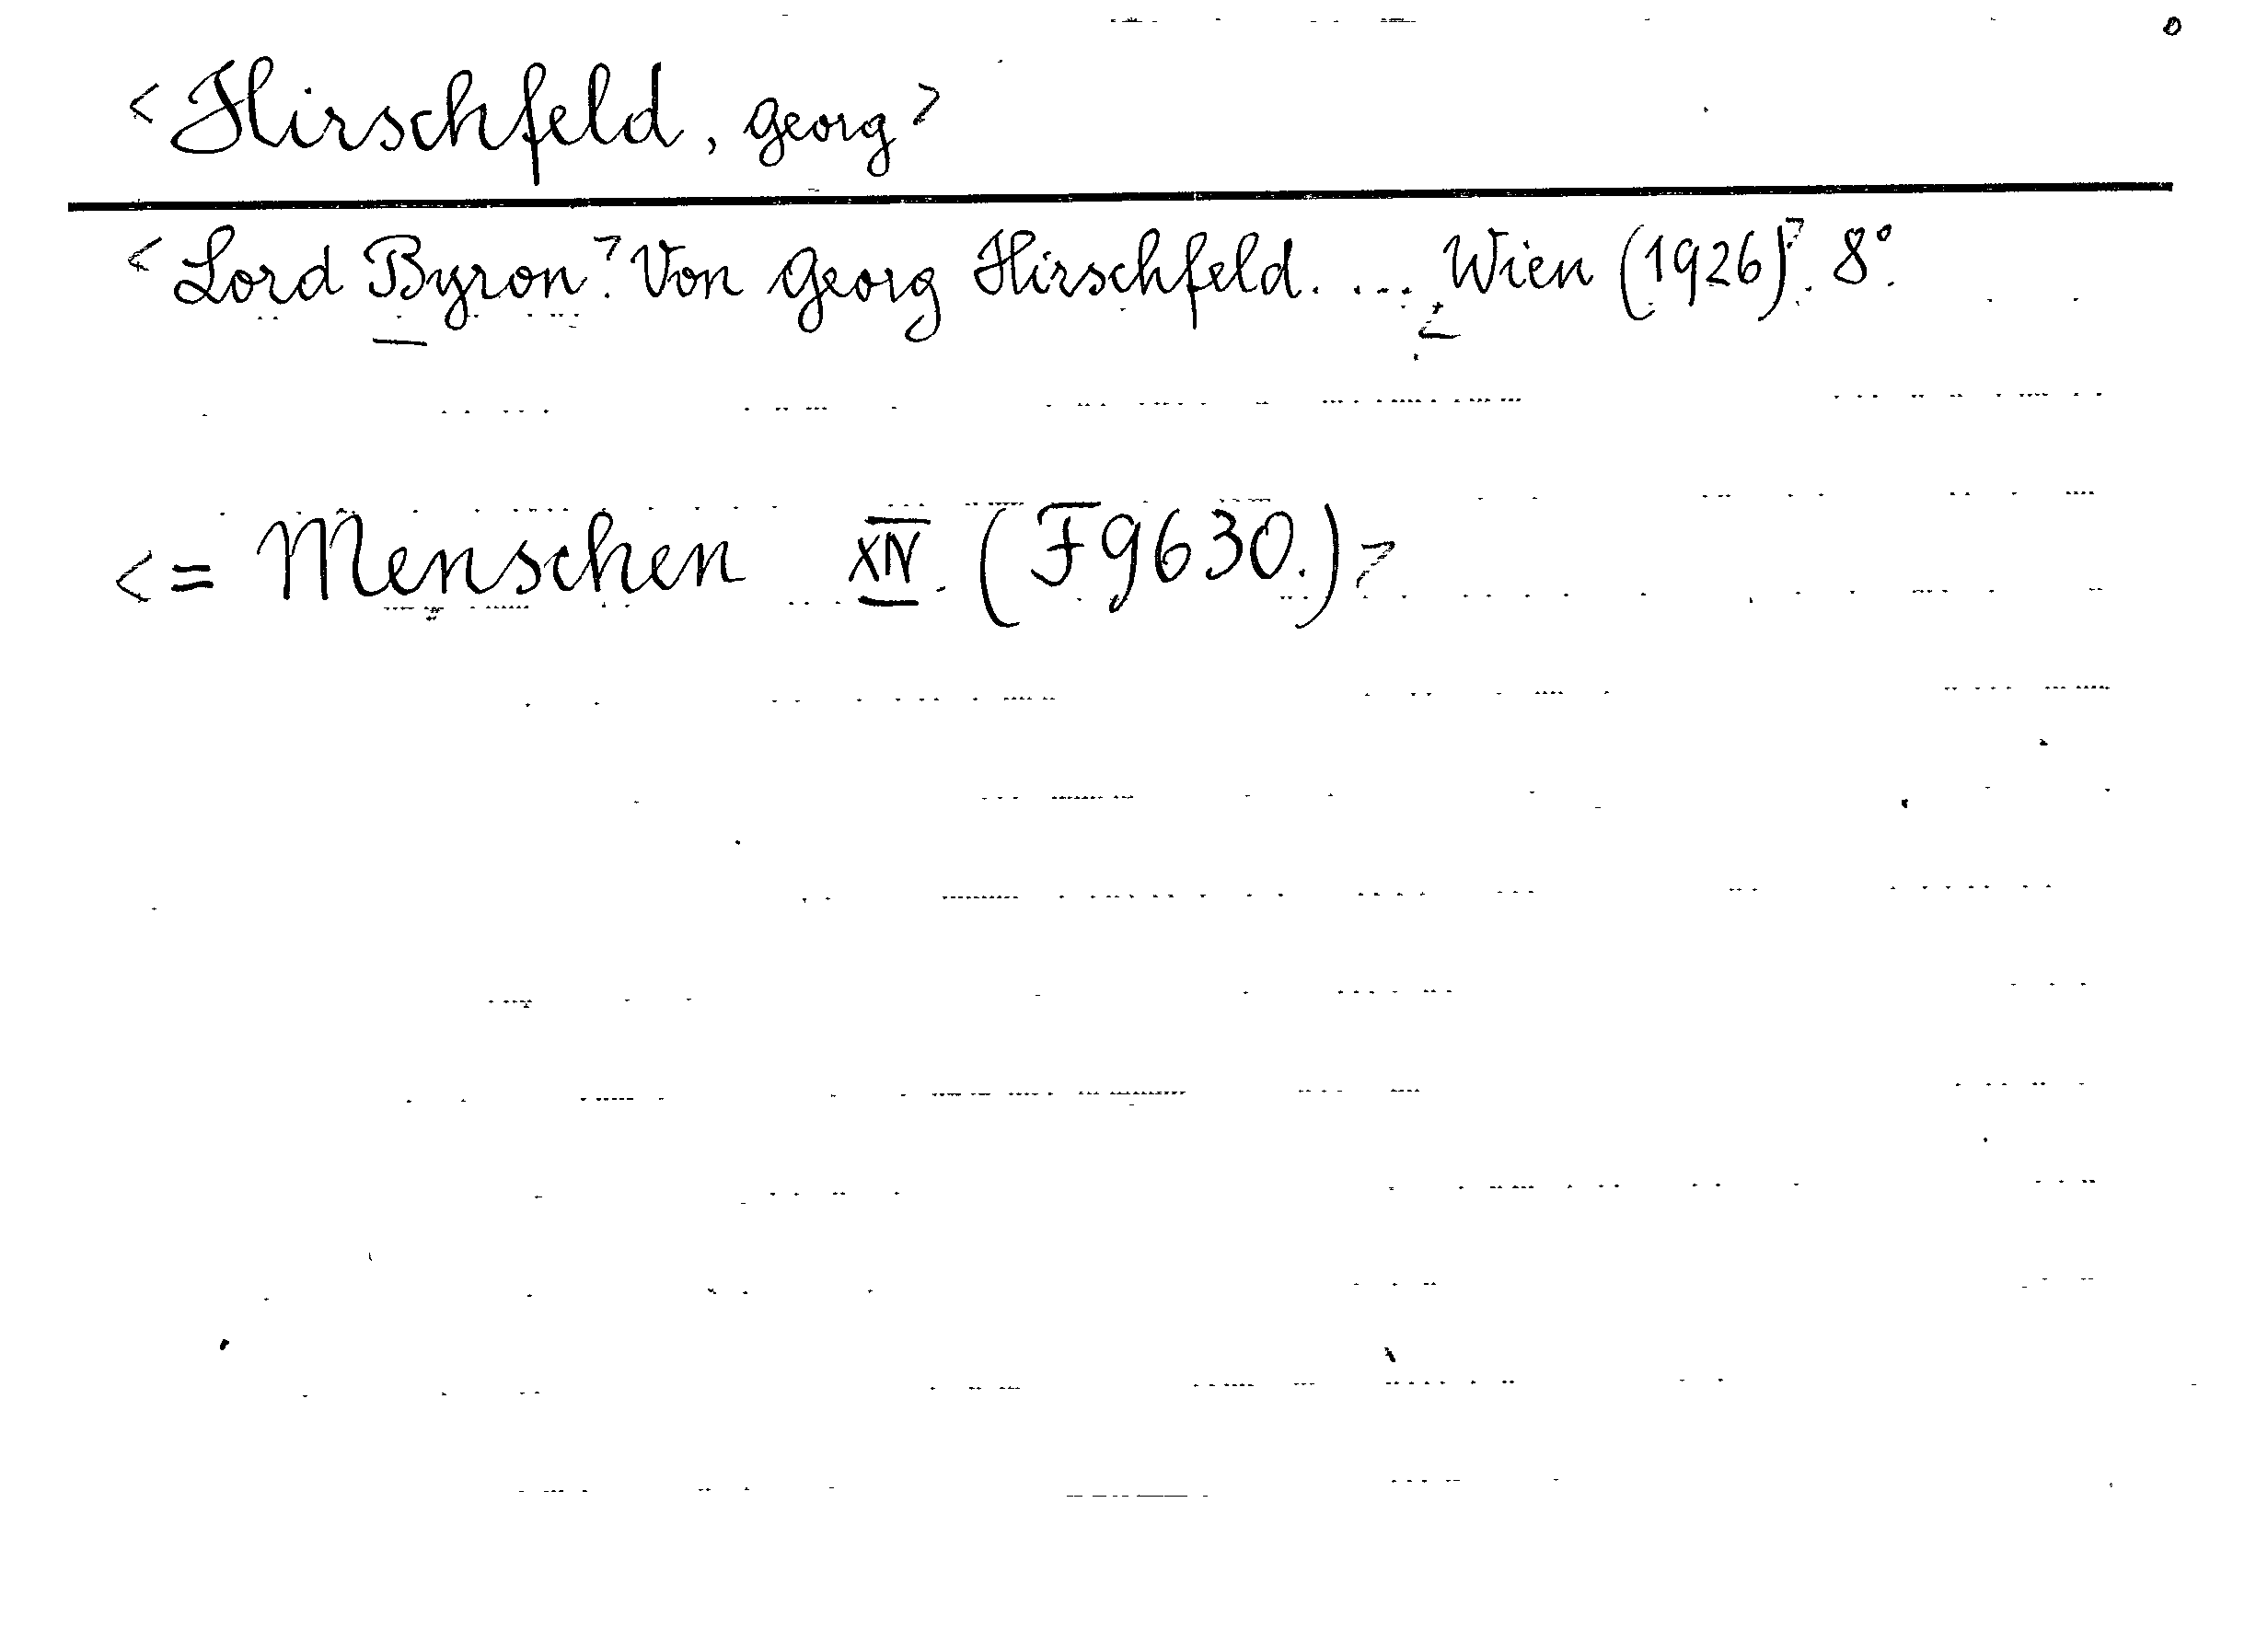 <Hirschfeld, Georg>
<Lord Byron>. Von Georg Hirschfeld. ... <Wien (1926)>. 8°.
<= Menschen XIV. (F9630.)>